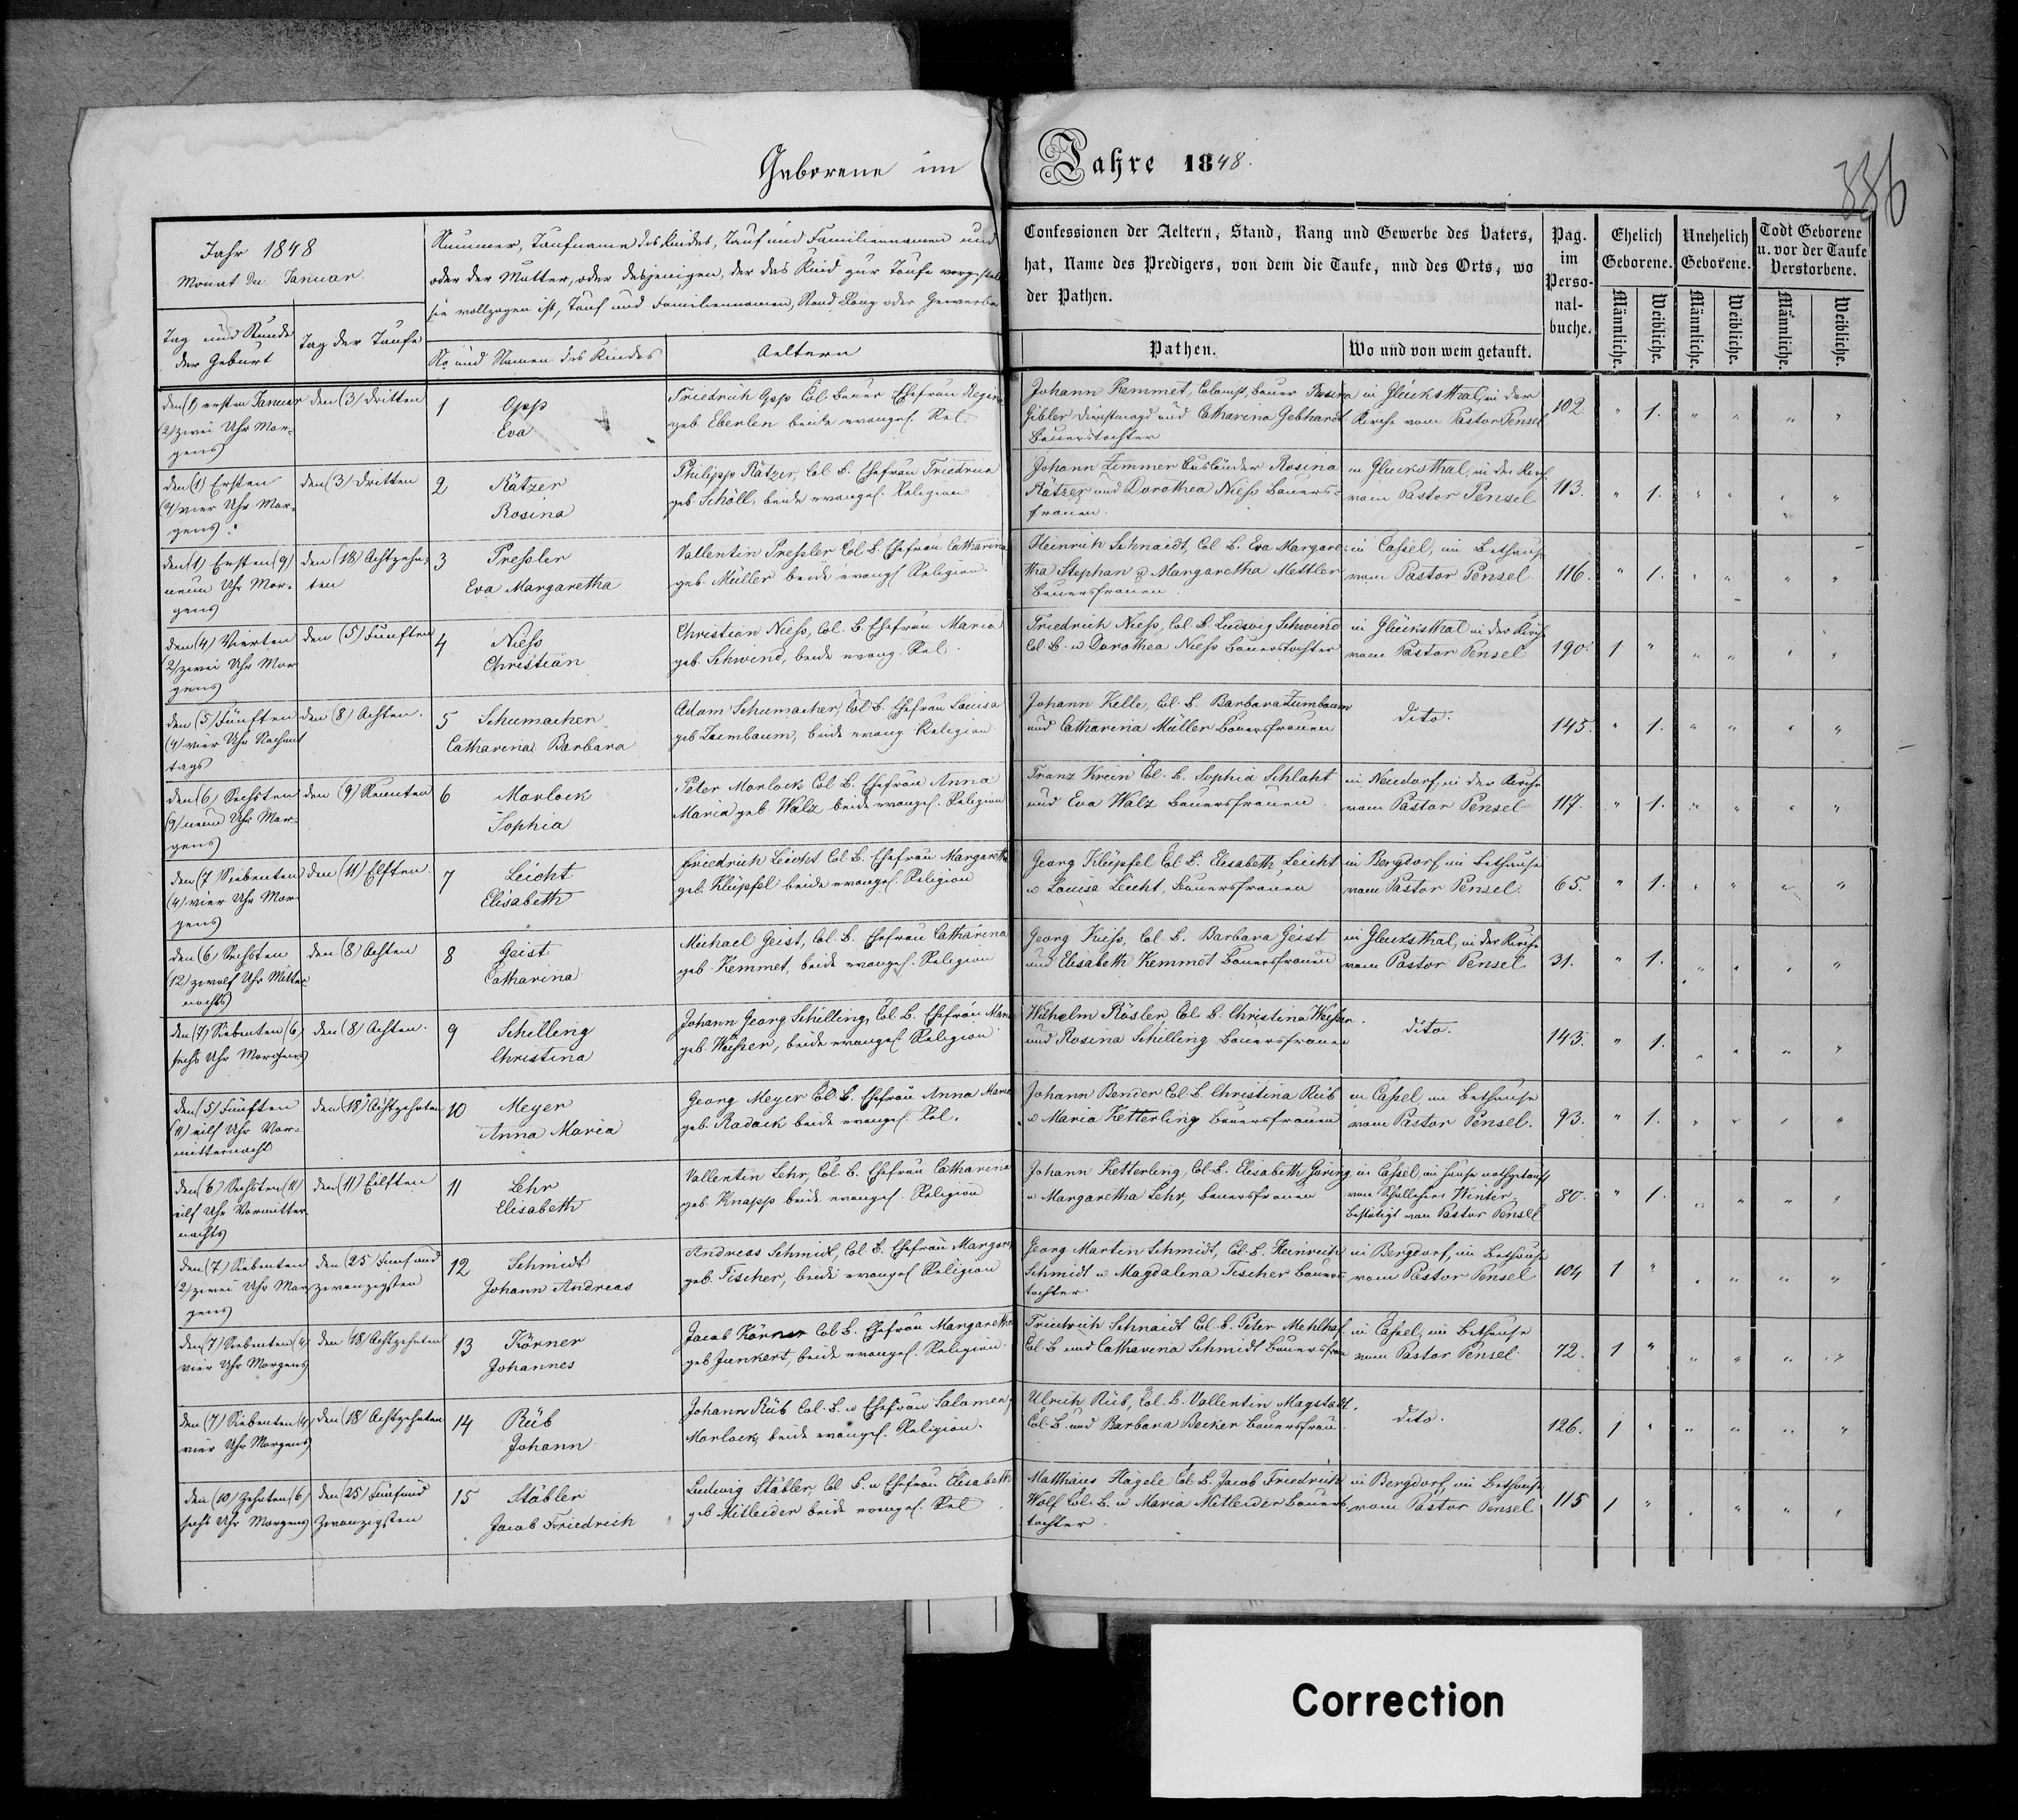 Geborene im Jahre 1848.
336
Jahr 1848
Monat Januar
Tag und Stunde der Geburt
Tag der Taufe
Nummer, Taufname des Kindes, Tauf und Familiennamen und
oder der Mutter, oder desjenigen, der das Kind zur Taufe vorgestellt
sie vollzogen ist, Tauf und Familiennamen, Stand, Rang oder Gewerbe
No und Namen des Kindes
Aeltern
Confessionen der Aeltern, Stand, Rang und Gewerbe des Vaters,
hat, Name des Predigers, von dem die Taufe, und des Orts, wo
der Pathen.
Pathen.
Wo und von wem getauft.
Pag. im Perso-nal-buche.
Ehelich Geborene.
Unehelich Geborene.
Todt Geborene u. vor der Taufe Verstorbene.
Männliche. Weibliche. Männliche. Weibliche. Männliche. Weibliche.
den (1) ersten Januar
(2) zwei Uhr Mor-
gens
den (3) dritten
1 Opp
Eva
Friedrich Opp Col Bauer Ehefrau Regina
geb Eberlen beide evangel. Rel.
Johann Kemmet, Colonist, Bauer Rosina
Gibler Dienstmagd und Catharina Gebhardt
Bauerstochter
in Glücksthal, in der
Kirche vom Pastor Pensel
102 " 1. " " " "
den (1) Ersten
(4) vier Uhr Mor-
gens
den (3) dritten
2 Rätzer
Rosina
Philipp Rätzer, Col. B. Ehefrau Friedrica
geb. Schöll, beide evangel. Religion
Johann Zimmer Ausländer Rosina
Rätzer und Dorothea Niess Bauers-
frauen.
in Glücksthal, in der Kirch
vom Pastor Pensel
113. " 1. " " " "
den (1) Ersten (9)
neun Uhr Mor-
gens
den (18) Achtzehn-
ten
3 Pressler
Eva Margaretha
Vallentin Pressler Col. B. Ehefrau Catharina
geb. Müller beide evangl Religion.
Heinrich Schnaidt, Col B. Eva Margare-
tha Stephan u Margaretha Mettler
Bauersfrauen
in Cassel, im Bethause
vom Pastor Pensel.
116. " 1. " " " "
den (4) Vierten
(2) zwei Uhr Mor
gens
den (5) Fünften
4 Niess
Christian
Christian Niess, Col. B Ehefrau Maria
geb. Schwind, beide evang. Rel.
Friedrich Niess, Col. B. Ludwig Schwind
Col. B. u Dorothea Niess Bauerstochter
in Glücksthal in der Kirche
vom Pastor Pensel
190. 1 " " " " "
den (5) Fünften
(4) vier Uhr Nachmit
tags
den (8) Achten.
5 Schumacher
Catharina Barbara
Adam Schumacher, Col B. Ehefrau Louisa
geb Zumbaum, beide evang Religion
Johann Kelle, Col. B. Barbara Zumbaum
und Catharina Müller Bauersfrauen
dito.
145. " 1. " " " "
den (6) Sechsten
(9) neun Uhr Mor-
gens
den (9) Neunten
6 Morlock
Sophia
Peter Morlock Col B. Ehefrau Anna
Maria geb Walz beide evangel. Religion
Franz Krein Col. B. Sophia Schlaht
und Eva Walz Bauersfrauen.
in Neudorf, in der Kirche
vom Pastor Pensel
117. " 1. " " " "
den (7) Siebenten
(4) vier Uhr Mor-
gens
den (11) Elften.
7 Leicht
Elisabeth
Friedrich Leicht Col B. Ehefrau Margaretha
geb. Klüpfel beide evangel. Religion
Georg Klüpfel Col. B. Elisabeth Leicht
u Louisa Leicht, Bauersfrauen
in Bergdorf im Bethause
vom Pastor Pensel.
65. " 1. " " " "
den (6) Sechsten
(12) zwölf Uhr Mitter
nachts
den (8) Achten
8 Geist
Catharina
Michael Geist, Col. B. Ehefrau Catharina
geb. Kemmet, beide evangel. Religion
Georg Kiess, Col. B. Barbara Geist
und Elisabeth Kemmet Bauersfrauen
in Glücksthal, in der Kirche
vom Pastor Pensel
31. " 1. " " " "
den (7) Siebenten (6)
sechs Uhr Morgens
den (8) Achten.
9 Schilling
Christina
Johann Georg Schilling, Col. B. Ehefrau Maria
geb. Weisser, beide evangel Religion
Wilhelm Rösler Col. B. Christina Weisser
und Rosina Schilling Bauersfrauen
dito.
143. " 1. " " " "
den (5) Fünften
(11) eilf Uhr Vor-
mitternacht
den (18) Achtzehnten
10 Meyer
Anna Maria
Georg Meyer Col. B. Ehefrau Anna Maria
geb. Radack beide evangel. Rel.
Johann Bender Col. B. Christina Rüb
u Maria Ketterling Bauersfrauen
in Cassel, im Bethause
vom Pastor Pensel.
93. " 1. " " " "
den (6) Sechsten (11)
eilf Uhr Vormitter
nachts
den (11) Eilften
11 Lehr
Elisabeth
Vallentin Lehr, Col. B. Ehefrau Catharina
geb. Knapp beide evangel. Religion
Johann Ketterling, Col. B. Elisabeth Göring
u Margaretha Lehr, Bauersfrauen
in Cassel, im Hause nothgetauft
vom Schullehrer Winter
bestätigt von Pastor Pensel
80. " 1. " " " "
den (7) Siebenten
(2) zwei Uhr Mor
gens
den (25) Fünfund
zwanzigsten
12 Schmidt
Johann Andreas
Andreas Schmidt, Col. B. Ehefrau Margar
geb. Fischer, beide evangel Religion
Georg Martin Schmidt, Col. B. Heinrich
Schmidt u Magdalena Fischer Bauers-
tochter.
in Bergdorf, im Bethause
vom Pastor Pensel
104 1 " " " " "
den (7) Siebenten (4)
vier Uhr Morgens
den (18) Achtzehnten
13 Körner
Johannes
Jacob Körner Col. B. Ehefrau Margaretha
geb Junkert, beide evangel. Religion.
Friedrich Schnaidt Col. B. Peter Mehlhaf
Col. B und Catharina Schmidt Bauersfrau
in Cassel, im Bethause
vom Pastor Pensel.
72. 1 " " " " "
den (7) Siebenten (4)
vier Uhr Morgens
den (18) Achtzehnten
14 Rüb
Johann
Johann Rüb Col. B. u Ehefrau Salomea
Morlock, beide evangel. Religion.
Ulrich Rüb, Col. B. Vallentin Magstadt,
Col. B. und Barbara Becker Bauersfrau.
dito.
126. 1 " " " " "
den (10) Zehnten (6)
sechs Uhr Morgens
den (25) Fünfund
Zwanzigsten
15 Stäbler
Jacob Friedrich
Ludwig Stäbler, Col B. u Ehefrau Elisabeth
geb Mitleider beide evangel. Rel
Matthäus Hägele Col. B. Jacob Friedrich
Wolf Col. B. u Maria Mitleider Bauers
tochter.
in Bergdorf, im Bethause
vom Pastor Pensel
115 1 " " " " "
Correction